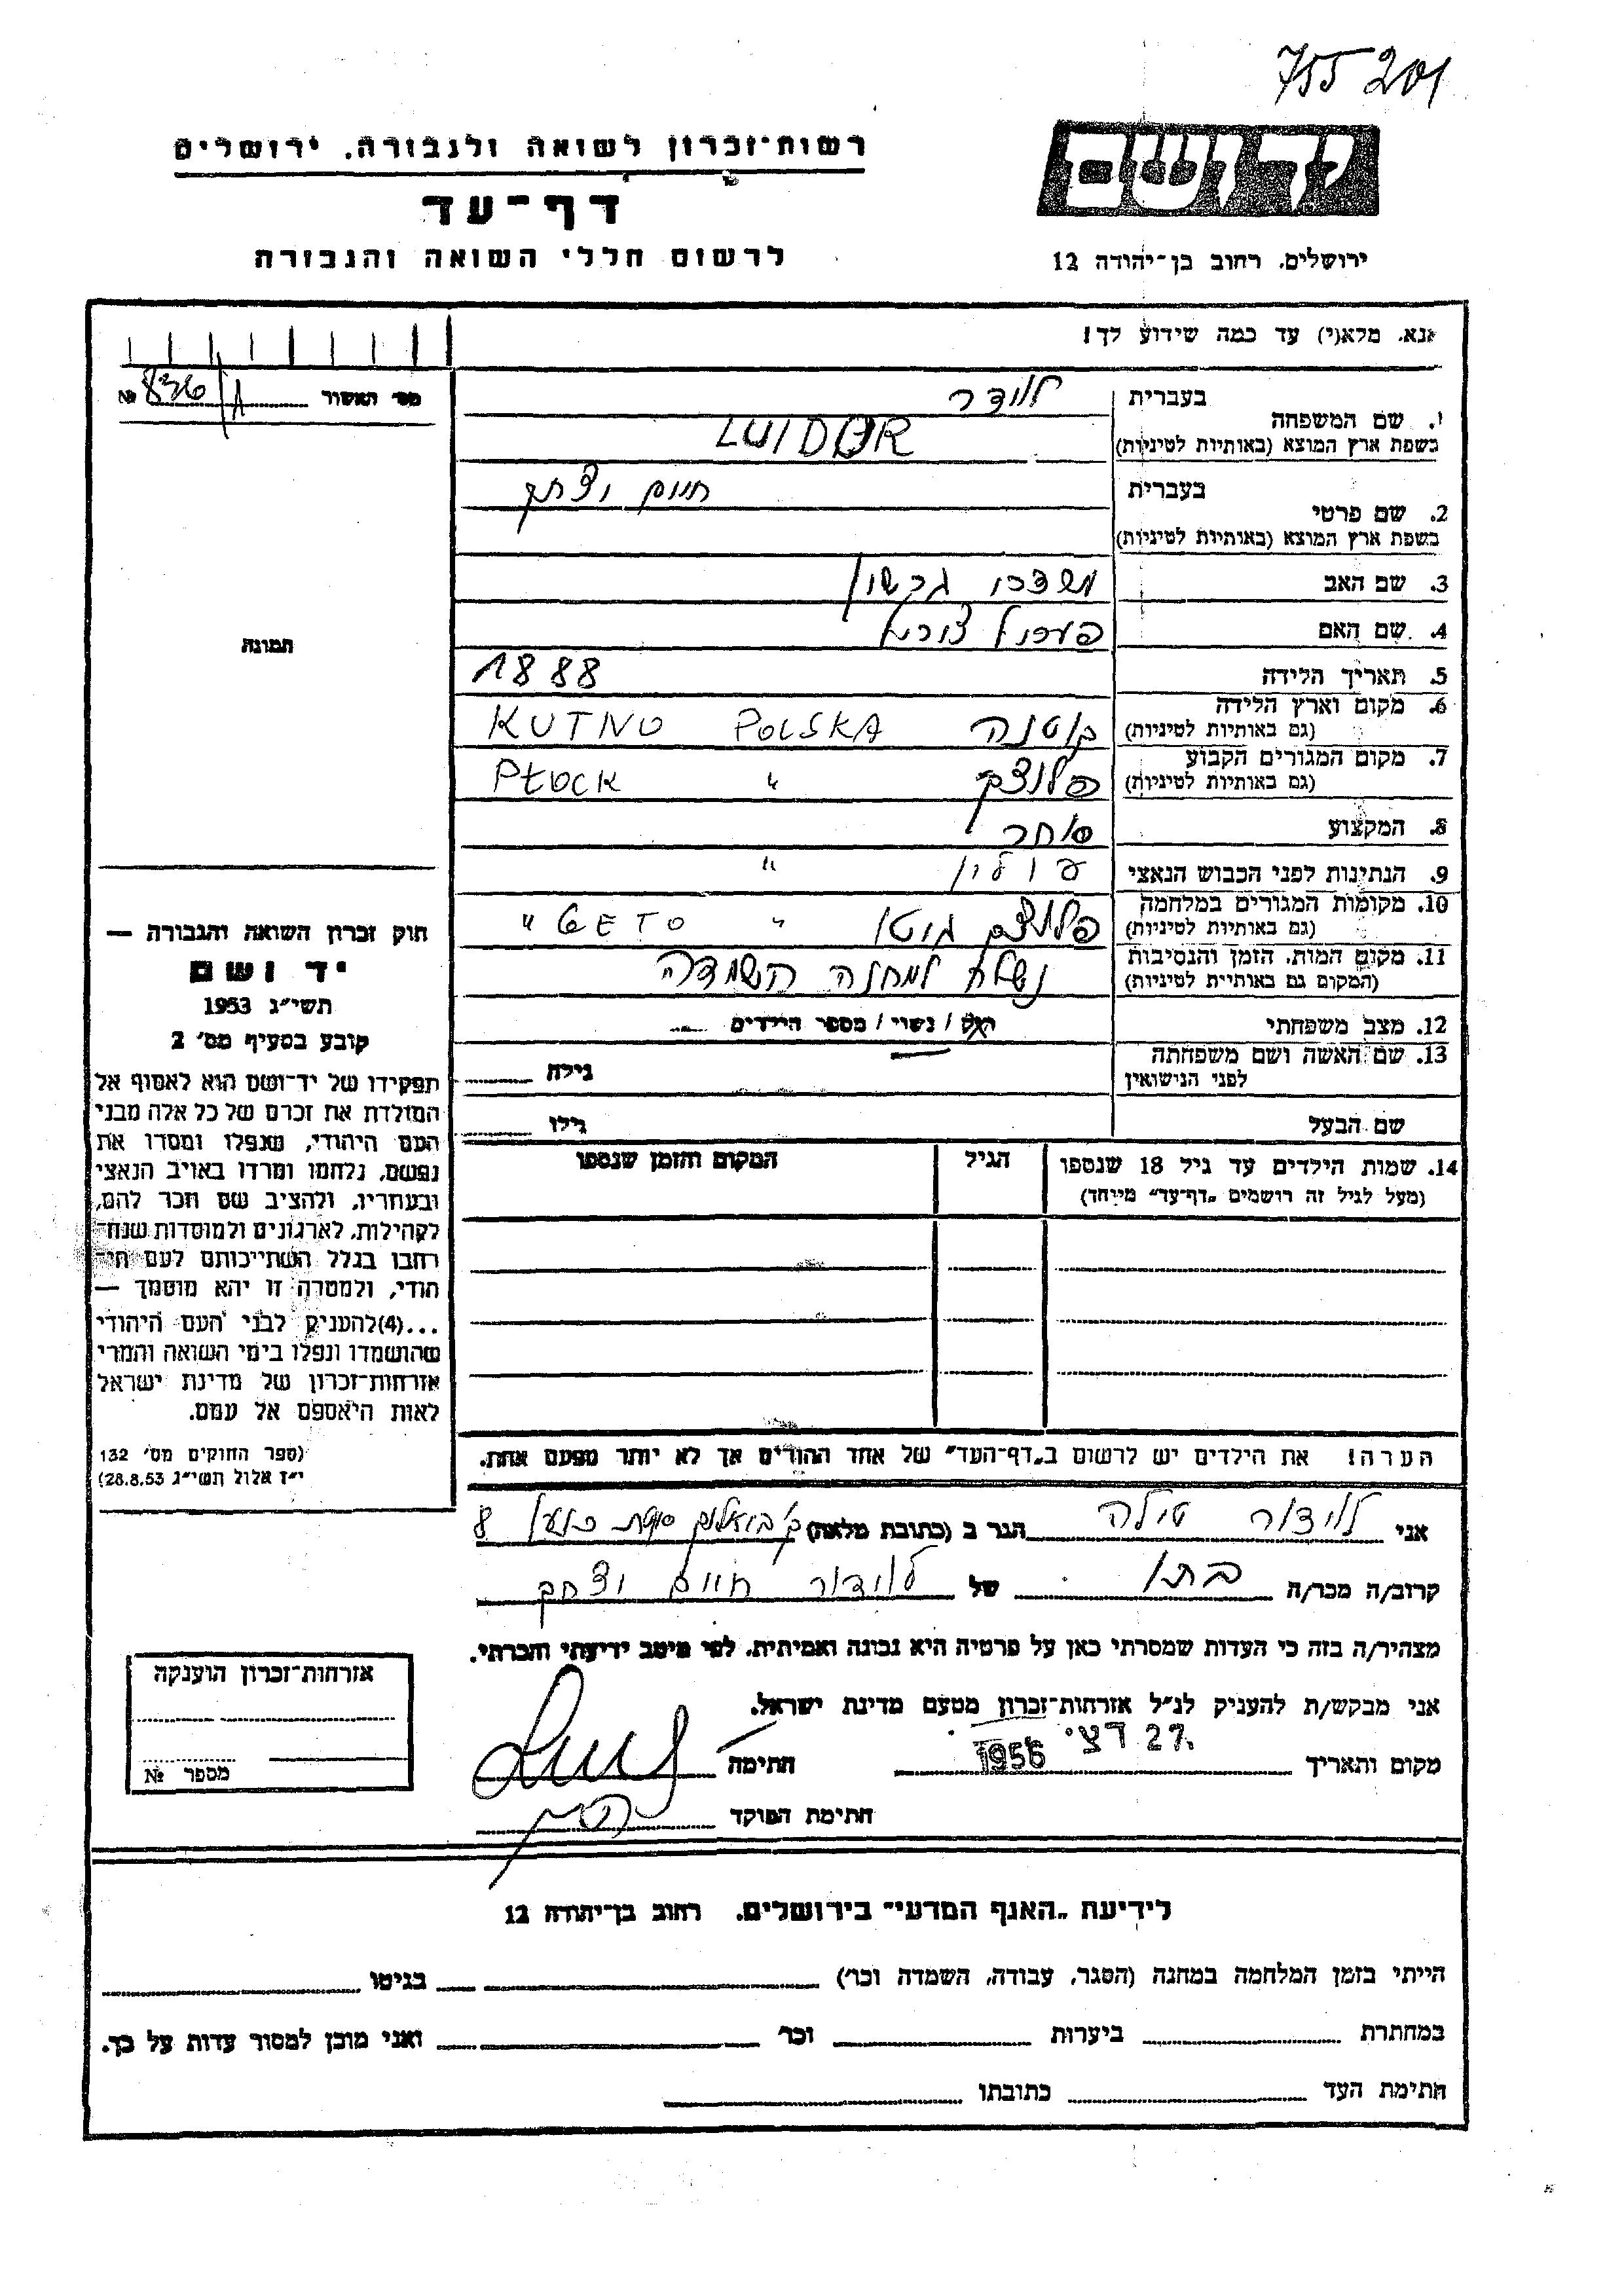 755201
רשות-זכרון לשואה ולגבורה, ירושלים
יד ושם
דף-עד
לרשום חללי השואה והגבורה
ירושלים, רחוב בן-יהודה 12
אנא, מלא(י) עד כמה שידוע לך!
מס' האשור № 836/A
בעברית לוידר
1. שם המשפחה
בשפת ארץ המוצא (באותיות לטיניות) LUIDOR
בעברית חיים יצחק
2. שם פרטי
בשפת ארץ המוצא (באותיות לטיניות)
3. שם האב מרדכי גרשון
4. שם האם
5. תאריך הלידה 1888
6. מקום וארץ הלידה קוטנה POLSKA KUTNO
(גם באותיות לטיניות)
7. מקום המגורים הקבוע פלוצק " Płock
(גם באותיות לטיניות)
8. המקצוע סוחר
9. הנתינות לפני הכבוש הנאצי פולין "
10. מקומות המגורים במלחמה פלוצק גיטו " GETO "
(גם באותיות לטיניות)
11. מקום המות, הזמן והנסיבות נשלח למחנה השמדה
(המקום גם באותיית לטיניות)
12. מצב משפחתי רווק / נשוי / מספר הילדים
13. שם האשה ושם משפחתה
לפני הנישואין גילה
שם הבעל גילו
14. שמות הילדים עד גיל 18 שנספו הגיל המקום והזמן שנספו
(מעל לגיל זה רושמים "דף-עד" מייוחד)
הערה! את הילדים יש לרשום ב"דף-העד" של אחד ההורים אך לא יותר מפעם אחת.
תמונה
חוק זכרון השואה והגבורה —
יד ושם
תשי״ג 1953
קובע בסעיף מס' 2
תפקידו של יד-ושם הוא לאסוף אל
המולדת את זכרם של כל אלה מבני
העם היהודי, שנפלו ומסרו את
נפשם, נלחמו ומרדו באויב הנאצי
ובעוזריו, ולהציב שם וזכר להם,
לקהילות, לארגונים ולמוסדות שנח־
רבו בגלל השתייכותם לעם הי־
הודי, ולמטרה זו יהא מוסמך —
...(4)להעניק לבני העם היהודי
שהושמדו ונפלו בימי השואה והמרי
אזרחות-זכרון של מדינת ישראל
לאות היאספם אל עמם.
(ספר החוקים מס' 132
י״ז אלול תשי״ג 28.8.53)
אני לוידור טילה הגר ב (כתובת מלאה) 8
קרוב/ה מכר/ה בתו של לוידור חיים יצחק
מצהיר/ה בזה כי העדות שמסרתי כאן על פרטיה היא נכונה ואמיתית, לפי מיטב ידיעתי והכרתי.
אני מבקש/ת להעניק לנ״ל אזרחות-זכרון מטעם מדינת ישראל.
מקום ותאריך 27. דצי 1956 חתימה
חתימת הפוקד
אזרחות-זכרון הוענקה
מספר №
לידיעת "האגף המדעי" בירושלים, רחוב בן-יהודה 12
הייתי בזמן המלחמה במחנה (הסגר, עבודה, השמדה וכו') בגיטו
במחתרת ביערות וכו' ואני מוכן למסור עדות על כך.
חתימת העד כתובתו